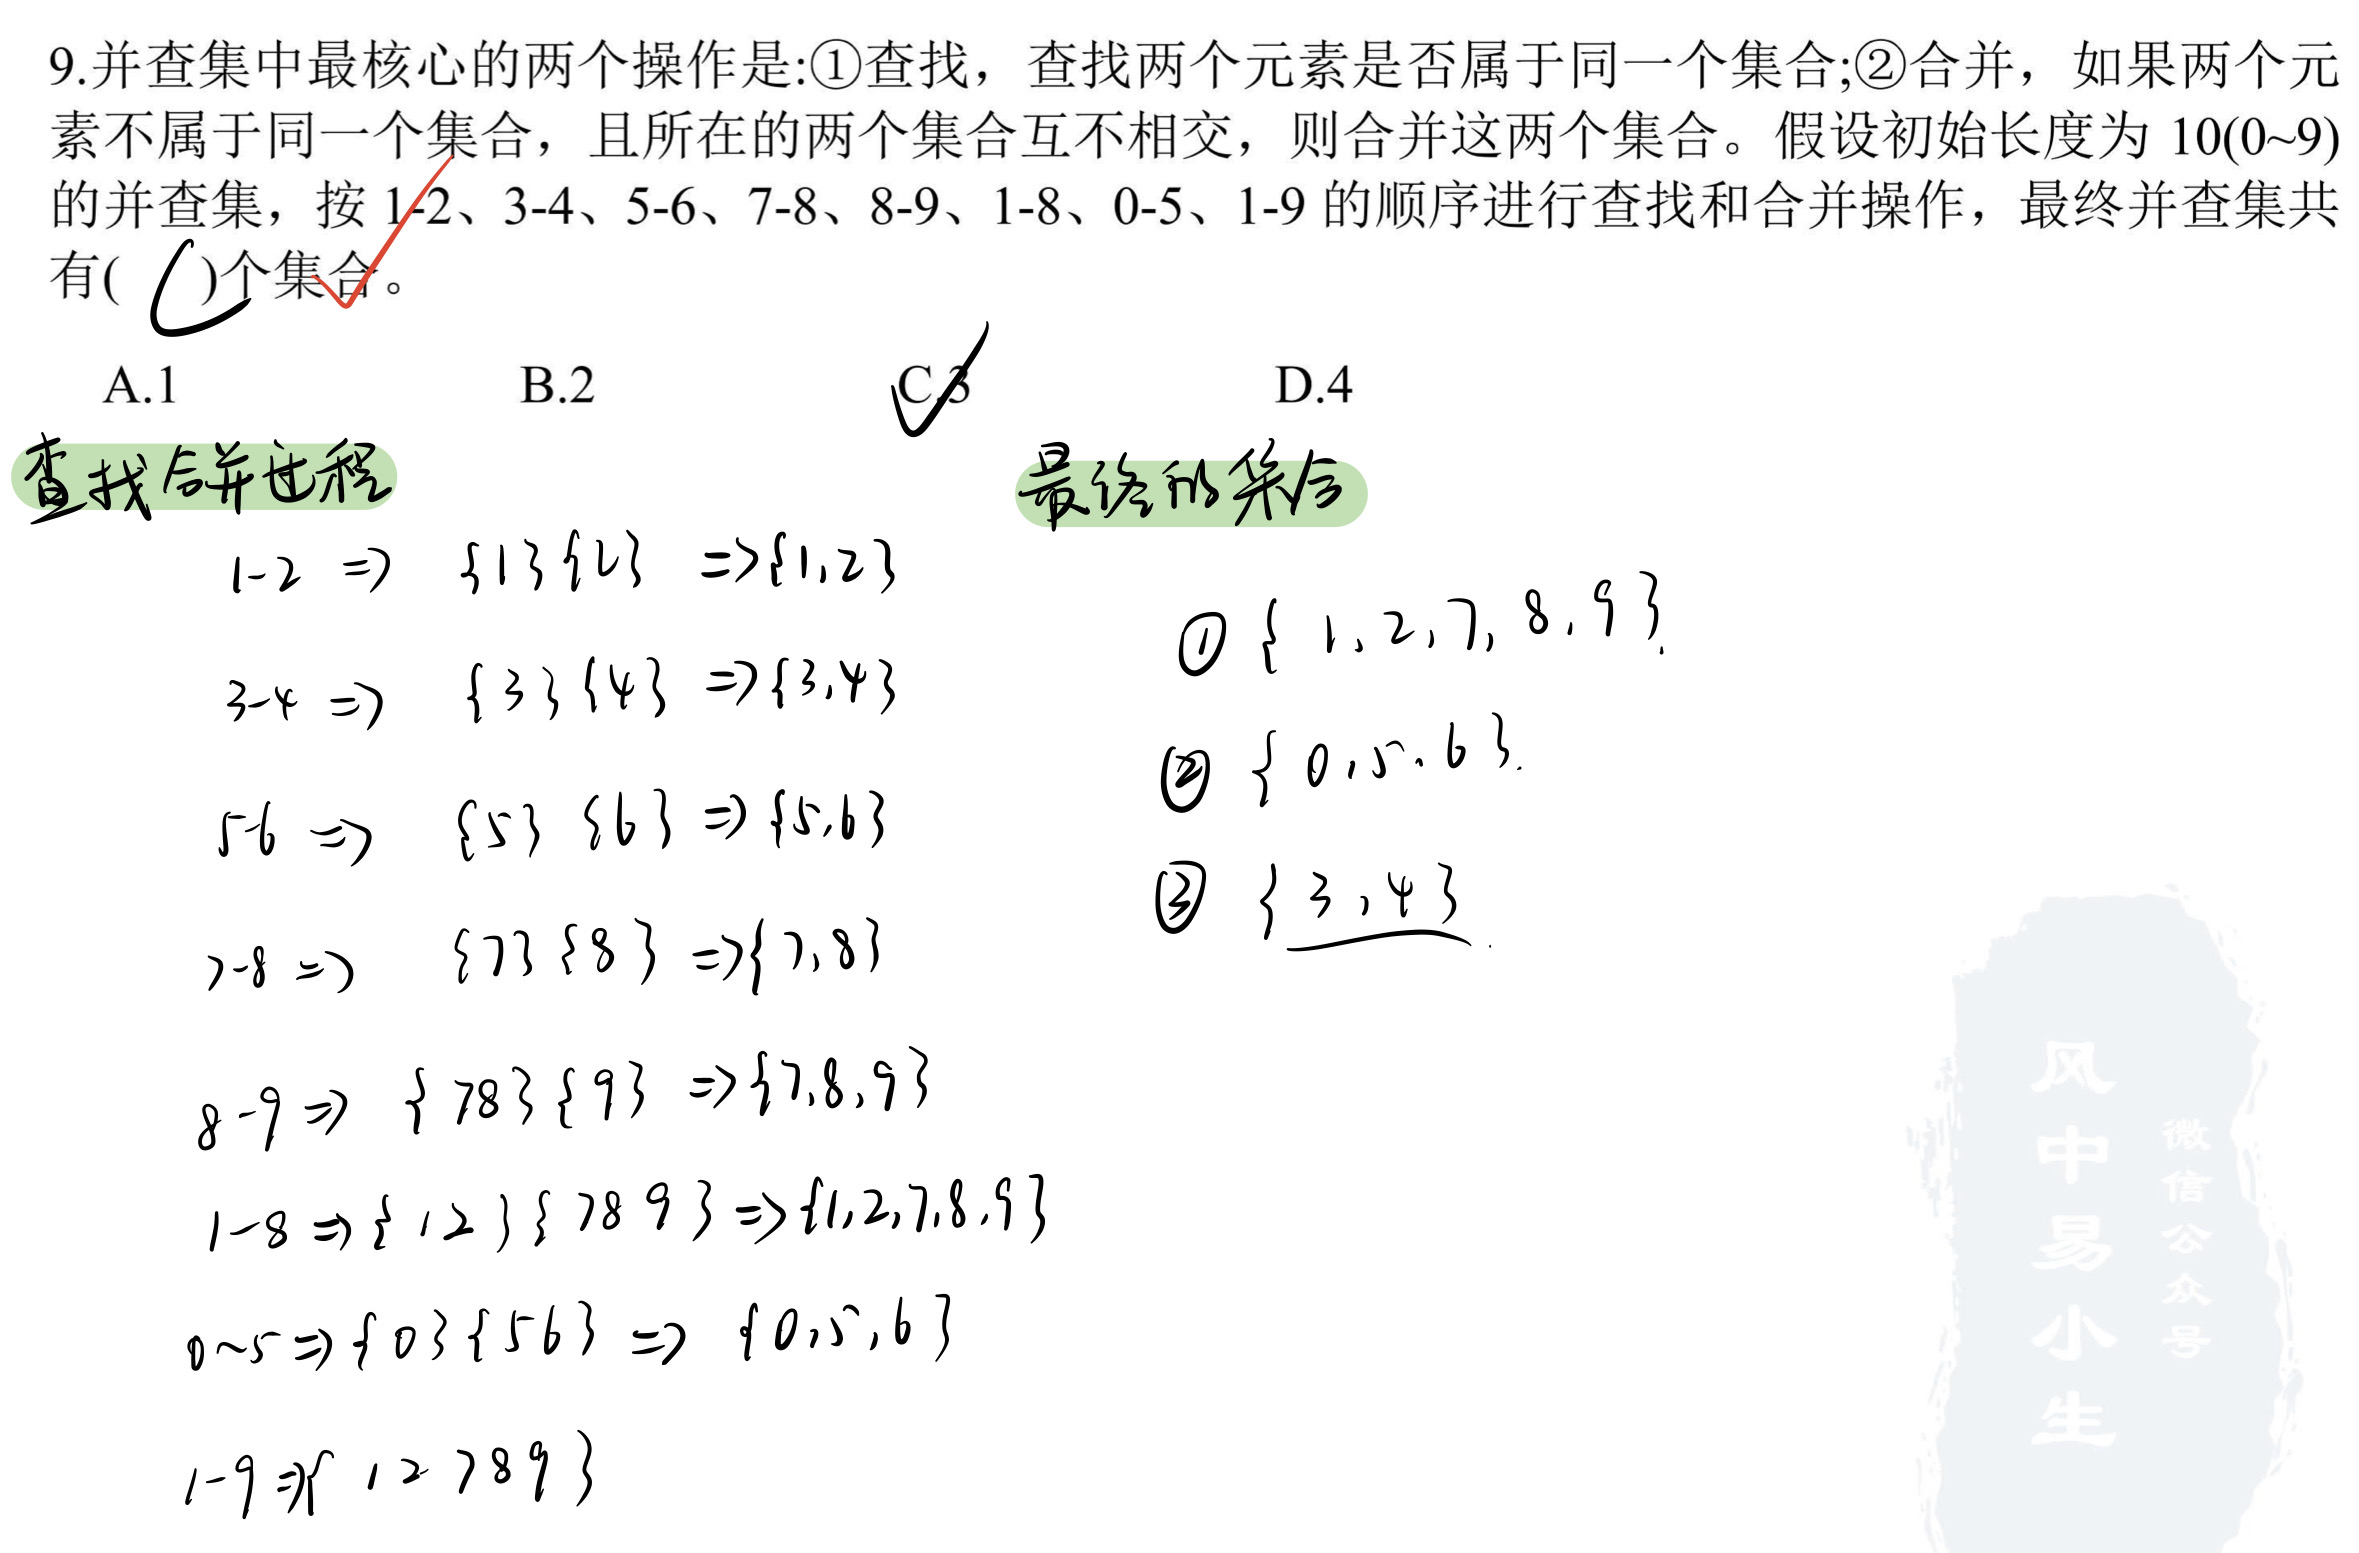 9.并查集中最核心的两个操作是:①查找，查找两个元素是否属于同一个集合;②合并，如果两个元
素不属于同一个集合，且所在的两个集合互不相交，则合并这两个集合。假设初始长度为 10(0~9)
的并查集，按 1-2、3-4、5-6、7-8、8-9、1-8、0-5、1-9 的顺序进行查找和合并操作，最终并查集共
有( C )个集合。
A.1 B.2 C.3 D.4
查找合并过程
1-2 => {1}{2} =>{1,2}
3-4 => {3}{4} =>{3,4}
5-6 => {5} {6} =>{5,6}
7-8 => {7}{8} =>{7,8}
8-9 => {78}{9} =>{7,8,9}
1-8 =>{12}{789} =>{1,2,7,8,9}
0~5 =>{0}{56} => {0,5,6}
1-9 =>{12789}
最终的集合
① {1,2,7,8,9}.
② {0,5,6}.
③ {3,4}.
风中易小生
微信公众号